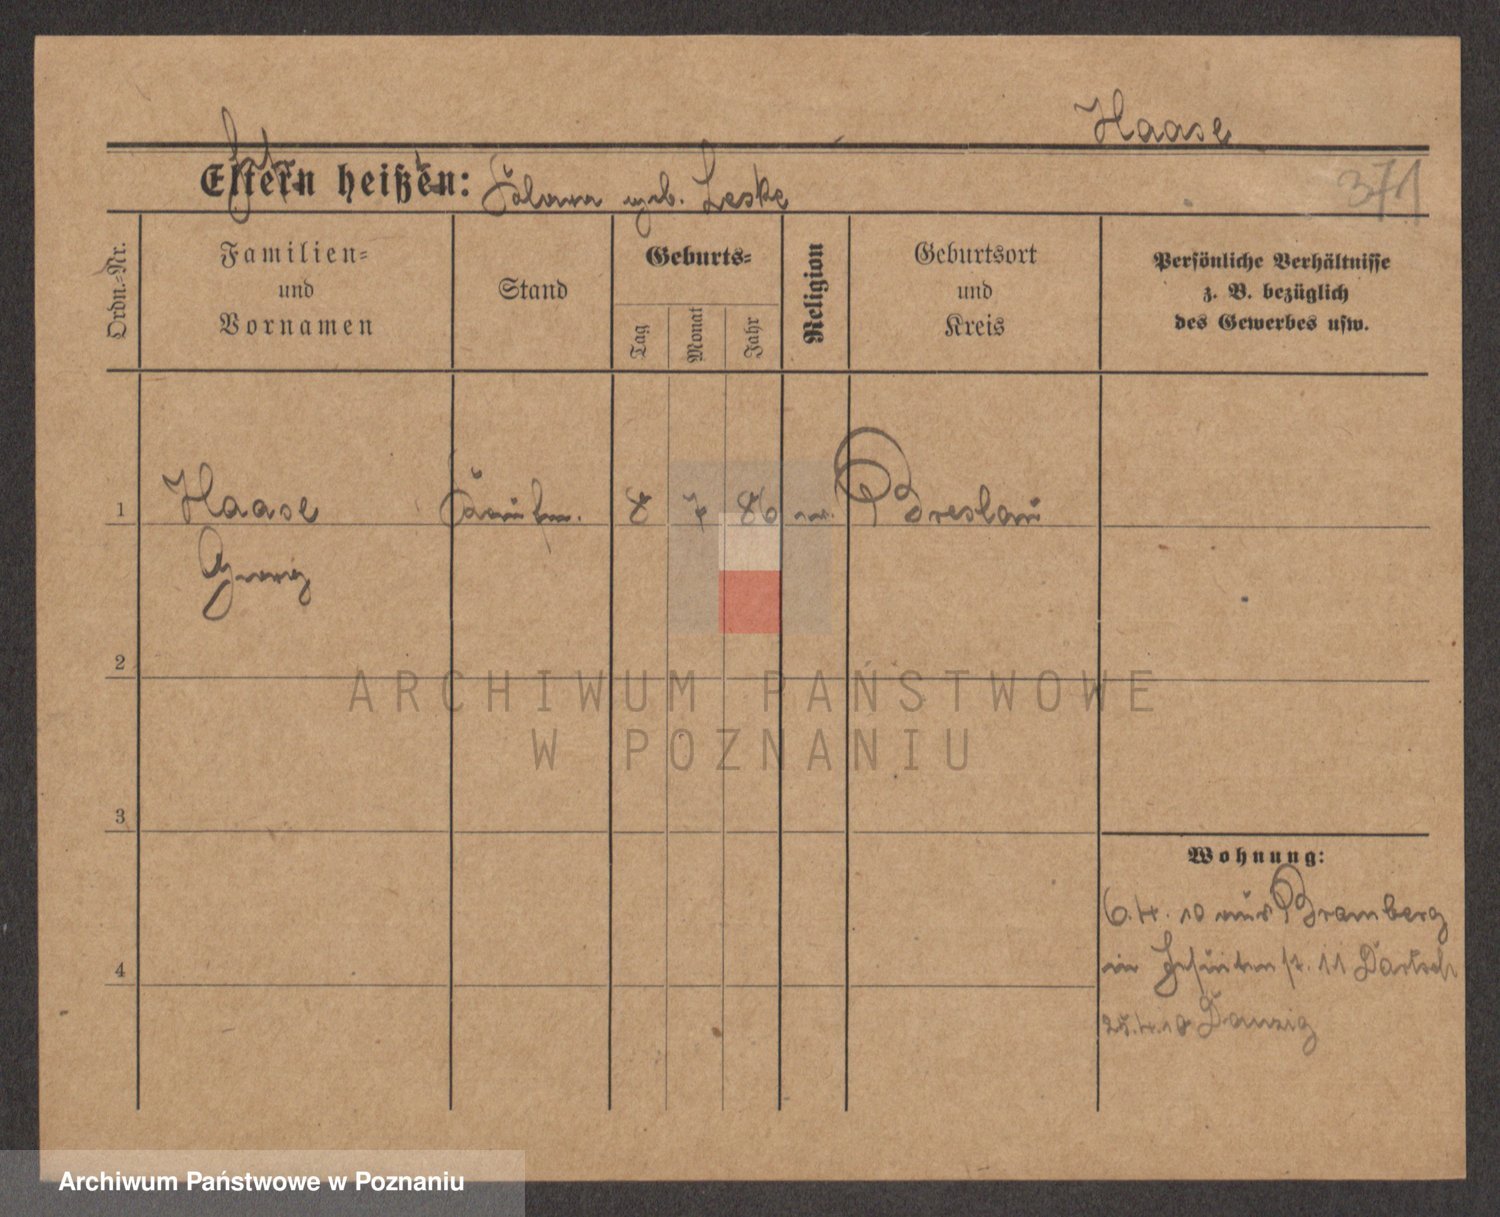 Haase
371
Eltern heißen: Clara geb. Leske
Ordn.=Nr.
Familien=
und
Vornamen
Stand
Geburts=
Tag
Monat
Jahr
Religion
Geburtsort
und
Kreis
Persönliche Verhältnisse
z. B. bezüglich
des Gewerbes usw.
1 Haase Kaufm. 8 7 86 Breslau
Georg
2
3
4
Wohnung:
6.4.10 aus Bromberg
in Jesuitenstr. 11
25.4.10 Danzig
ARCHIWUM PAŃSTWOWE
W POZNANIU
Archiwum Państwowe w Poznaniu